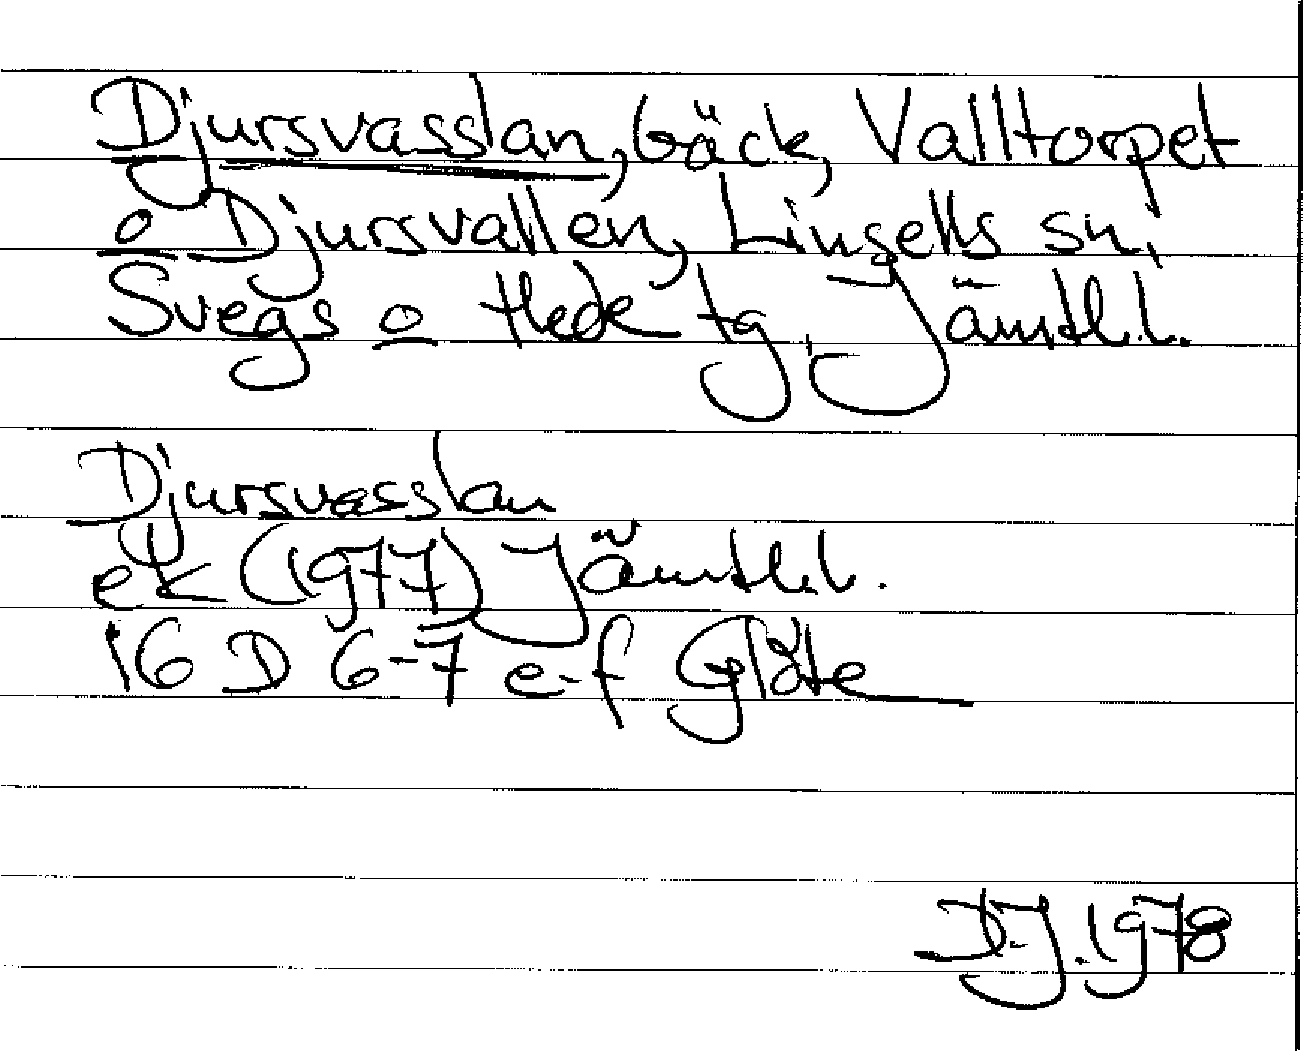 Djursvasslan, bäck, Valltorpet
o Djursvallen, Linsells sn,
Svegs o Hede tg, Jämtl.l.
Djursvasslan
ek (1977) Jämtl.l.
16 D 6-7 e-f Glöte
D.J. 1978